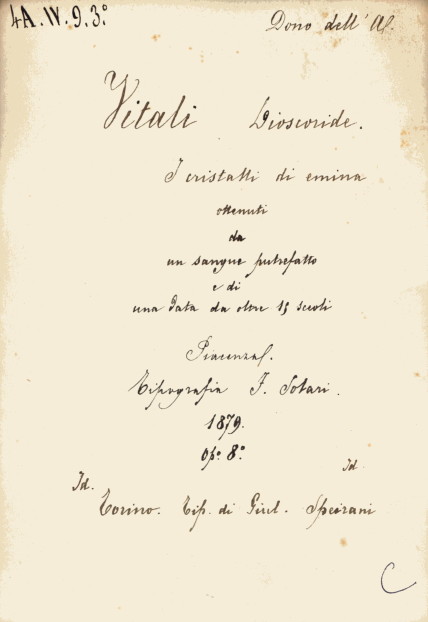 4A.IV.9.3.°
Dono dell' A.
Vitali Dioscoride.
I cristalli di emina
ottenuti
da
un sangue putrefatto
e di
una data da oltre 15 secoli
Piacenza.
Tipografia F. Solari.
1879.
Op.° 8.°
Id.
Id
Torino. Tip. di Giul. Speirani
C